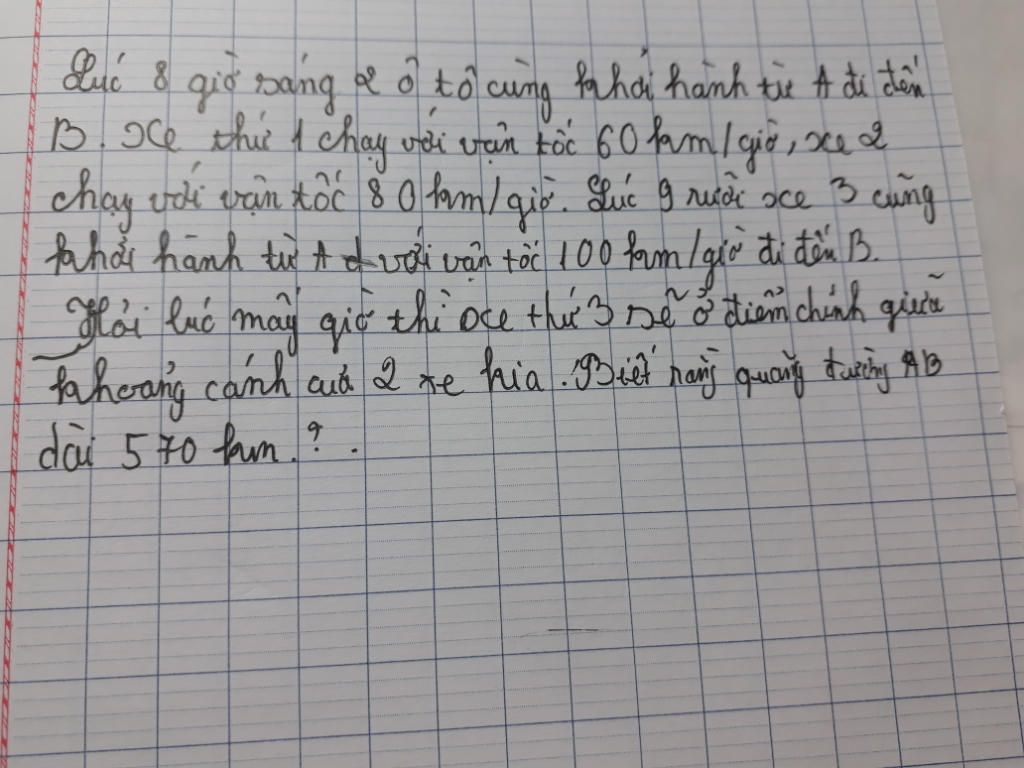 Lúc 8 giờ sáng 2 ô tô cùng khởi hành từ A đi đến
B. Xe thứ 1 chạy với vận tốc 60 km/giờ, xe 2
chạy với vận tốc 80 km/giờ. Lúc 9 rưỡi xe 3 cũng
khởi hành từ A với vận tốc 100 km/giờ đi đến B.
Hỏi lúc mấy giờ thì xe thứ 3 sẽ ở điểm chính giữa
khoảng cánh của 2 xe kia. Biết rằng quãng đường AB
dài 570 km.?.